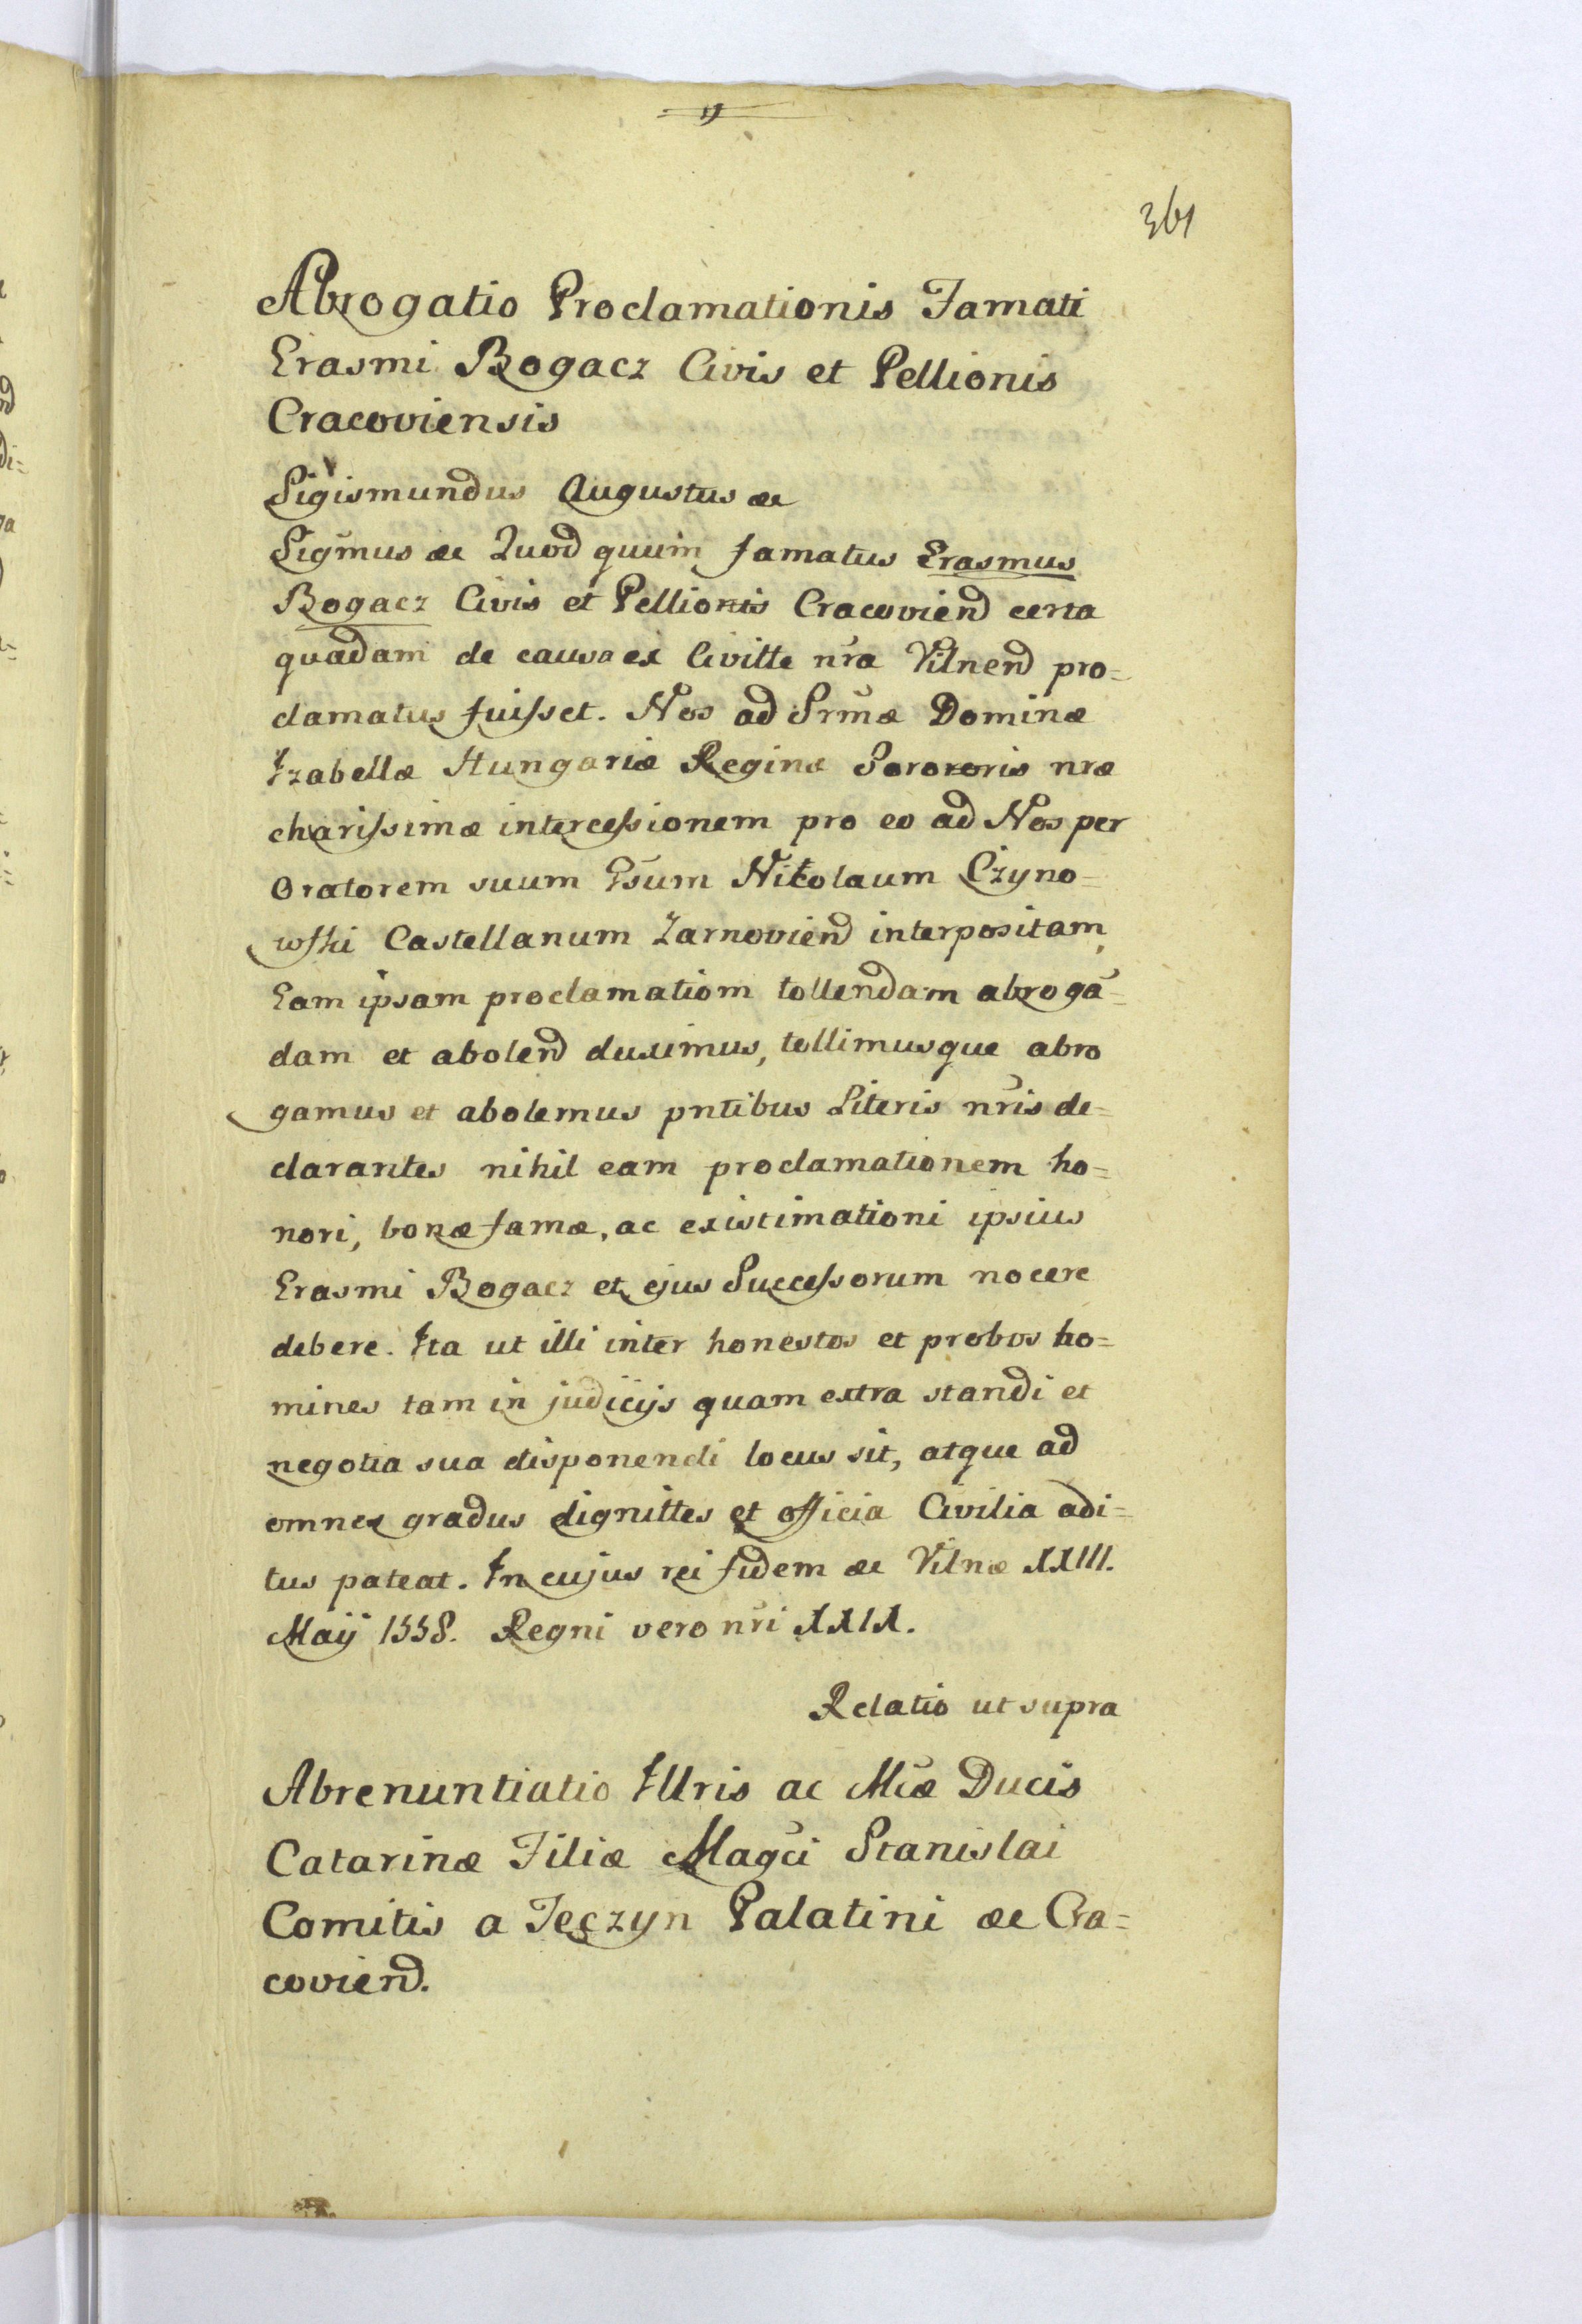 361
Abrogatio Proclamationis Famati
Erasmi Bogacz Civis et Pellionis
Cracoviensis
Sigismundus Augustus &c
Sigm̄us &c Quod quum famatus Erasmus
Bogacz Civis et Pellionis Cracovien̄ certa
quadam de causa ex Civitte nr̄a Vilnen̄ pro=
clamatus fuisset. Nos ad Srm̄æ Dominæ
Izabellæ Hungariæ Reginæ Sorororis nræ
charissimæ intercessionem pro eo ad Nos per
Oratorem suum Gs̄um Nikolaum Czyno=
wski Castellanum Zarnovien̄ interpositam,
Eam ipsam proclamatiom tollendam abrogā=
dam et abolen̄ duximus, tollimusque abro
gamus et abolemus pn̄tibus Literis nr̄is de=
clarantes nihil eam proclamationem ho=
nori, bonæ famæ, ac existimationi ipsius
Erasmi Bogacz et ejus Successorum nocere
debere. Ita ut illi inter honestos et probos ho=
mines tam in judicijs quam extra standi et
negotia sua disponendi locus sit, atque ad
omnes gradus dignittes et officia Civilia adi=
tus pateat. In cujus rei fidem &c Vilnæ XXIII.
Maij 1558. Regni vero nr̄i XXIX.
Relatio ut supra
Abrenuntiatio Illris ac Mcæ Ducis
Catarinæ Filiæ Magci Stanislai
Comitis a Tęczyn Palatini &c Cra=
covien̄.